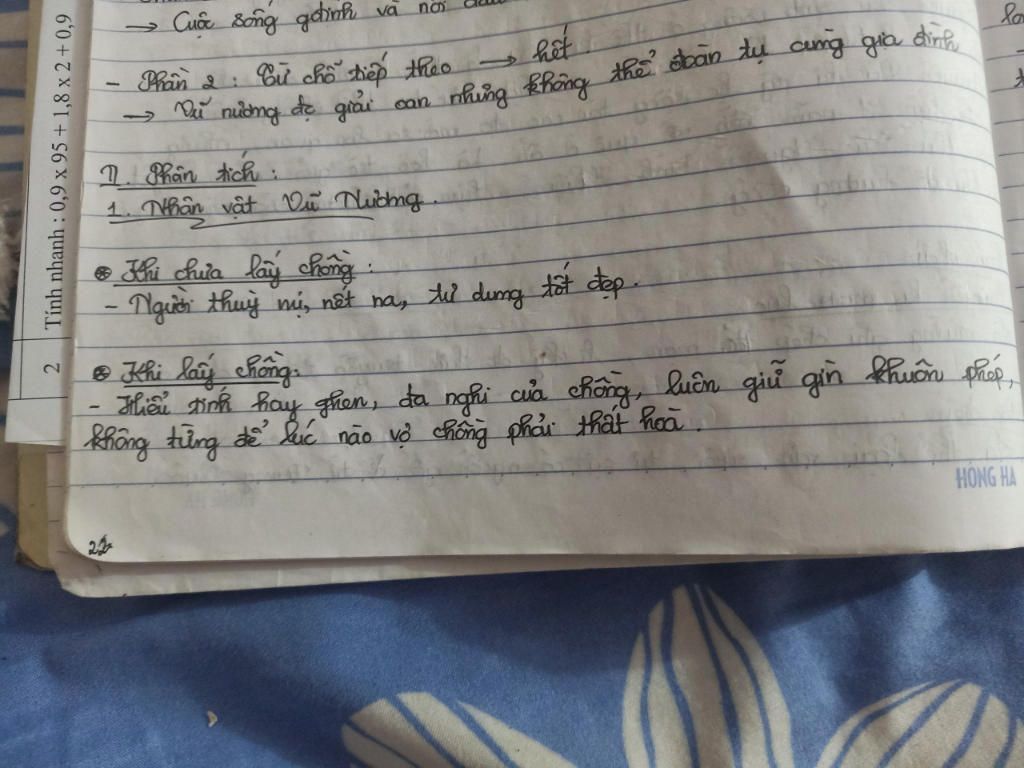 → Cuộc sống gđình và nỗi
- Phần 2 : Từ chỗ tiếp theo → hết
→ Vũ nương đc giải oan nhưng không thể đoàn tụ cùng gia đình
II. Phân tích :
1. Nhân vật Vũ Nương.
⊛ Khi chưa lấy chồng :
- Người thuỳ mị, nết na, tư dung tốt đẹp.
⊛ Khi lấy chồng:
- Hiểu tính hay ghen, đa nghi của chồng, luôn giữ gìn khuôn phép,
không từng để lúc nào vợ chồng phải thất hoà.
HỒNG HÀ
2 Tính nhanh : 0,9 x 95 + 1,8 x 2 + 0,9